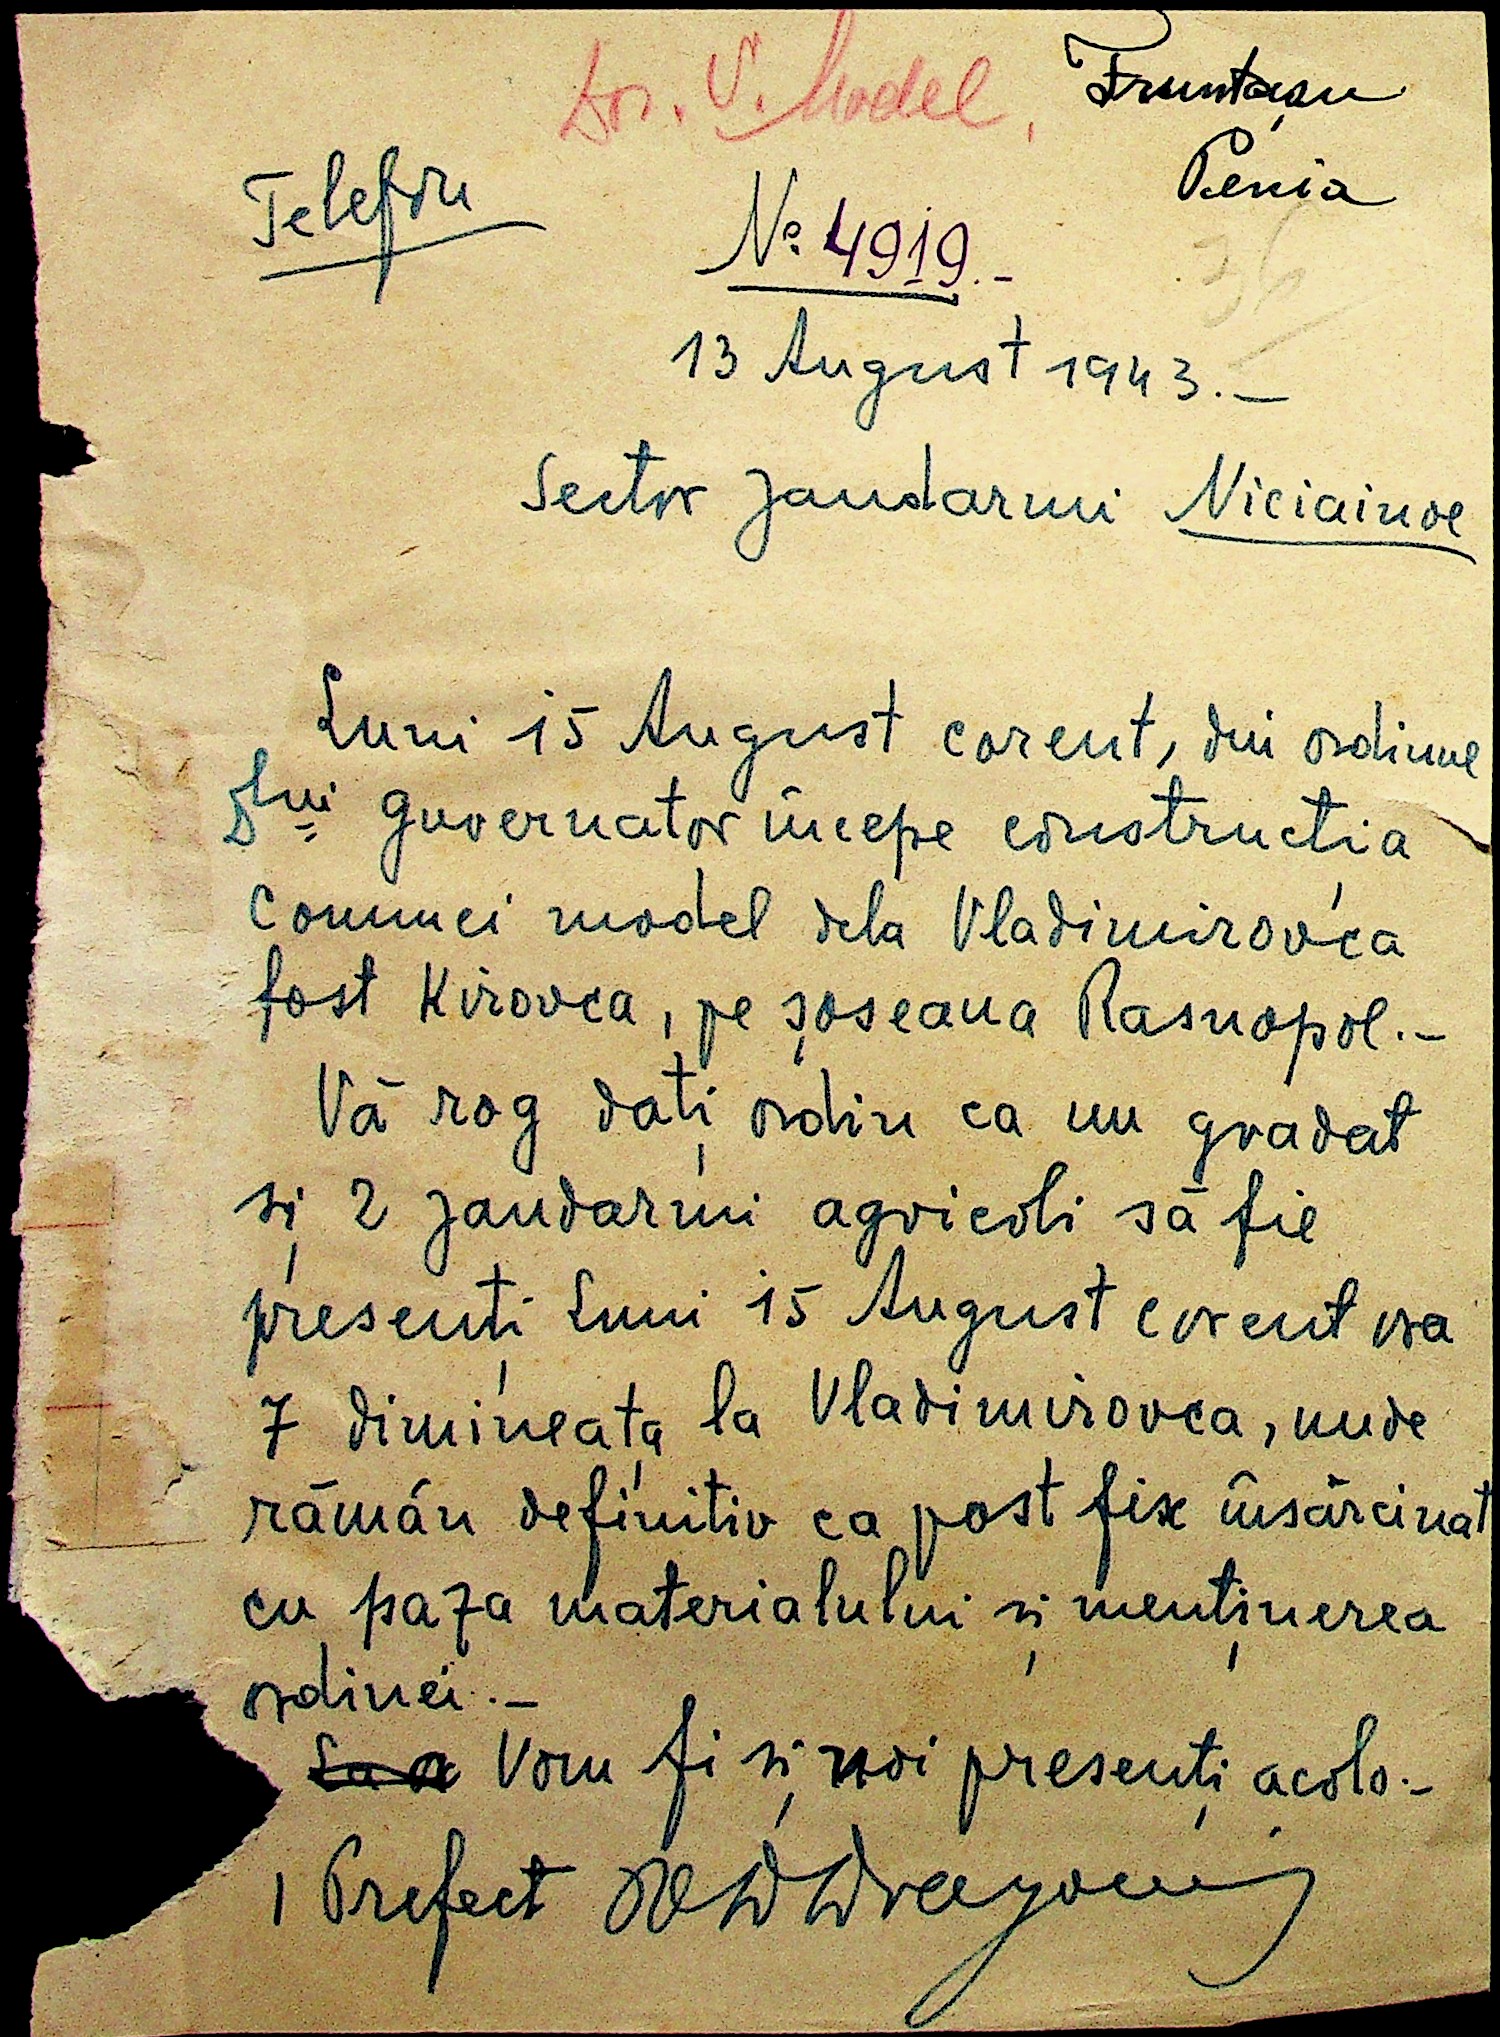 Dos. V. Model.
Fruntașu
Penia
Telefon
No 4919.-
13 August 1943.-
Sector jandarmi Niciainoe
Luni 15 August corent, din ordinul
Dlui guvernator începe construcția
comunei model dela Vladimirovca
fost Kirovca, pe șoseaua Rasnopol.-
Vă rog dați ordin ca un gradat
și 2 jandarmi agricoli să fie
presenți Luni 15 August corent ora
7 dimineața la Vladimirovca, unde
rămân definitiv ca post fix însărcinat
cu paza materialului și menținerea
ordinei.-
Vom fi și noi presenți acolo.-
Prefect